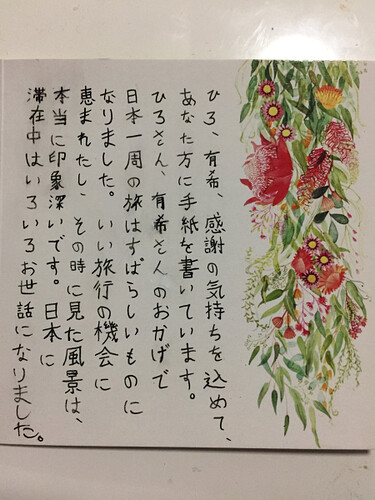 ひろ、有希、感謝の気持ちを込めて、
あなた方に手紙を書いています。
ひろさん、有希さんのおかげで
日本一周の旅はすばらしいものに
なりました。いい旅行の機会に
恵まれたし、その時に見た風景は、
本当に印象深いです。日本に
滞在中はいろいろお世話になりました。